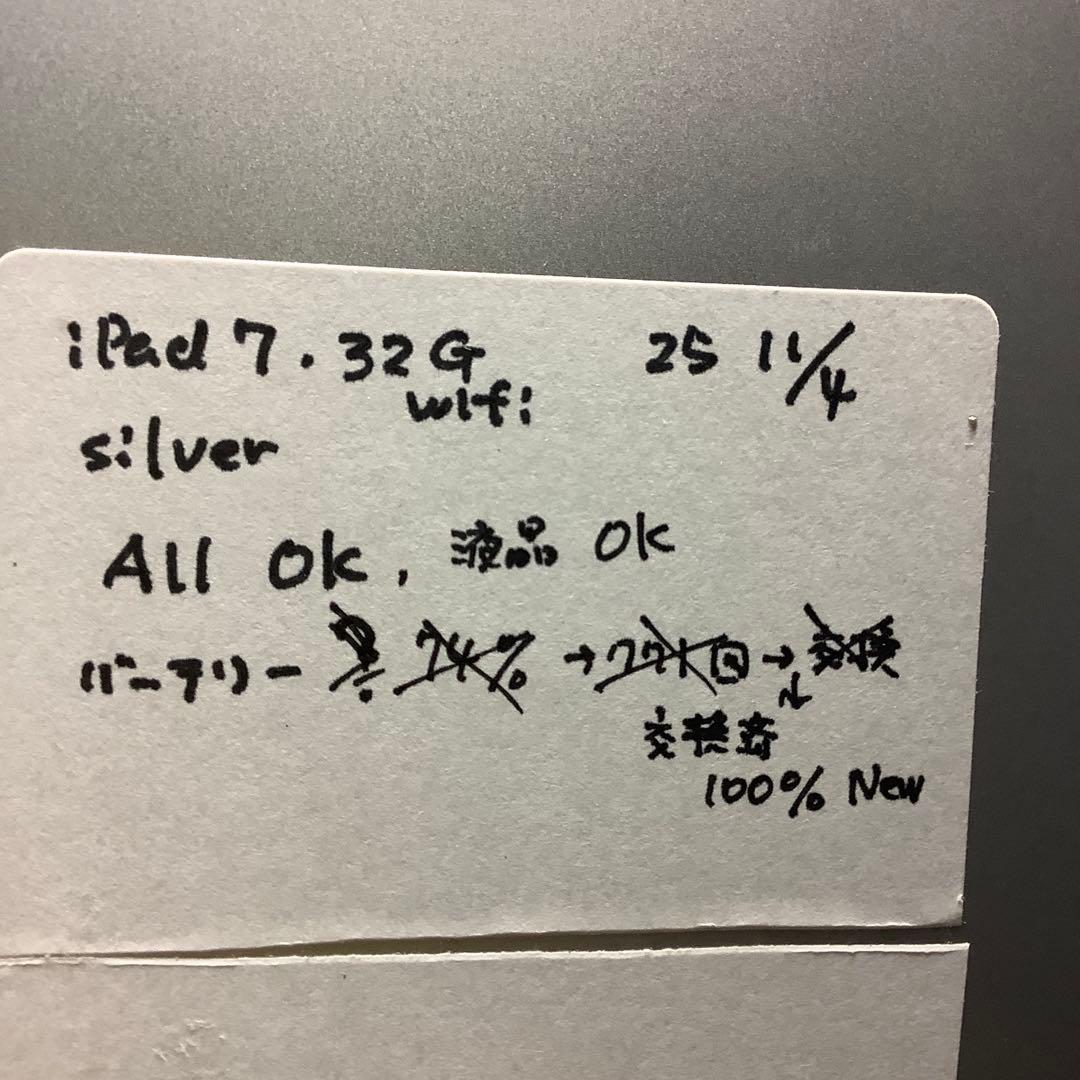 iPad 7. 32G 25 11/4
wifi
silver
All Ok, 液晶 Ok
バーテリー 74% → 771回 → 交換
交換済
100% New